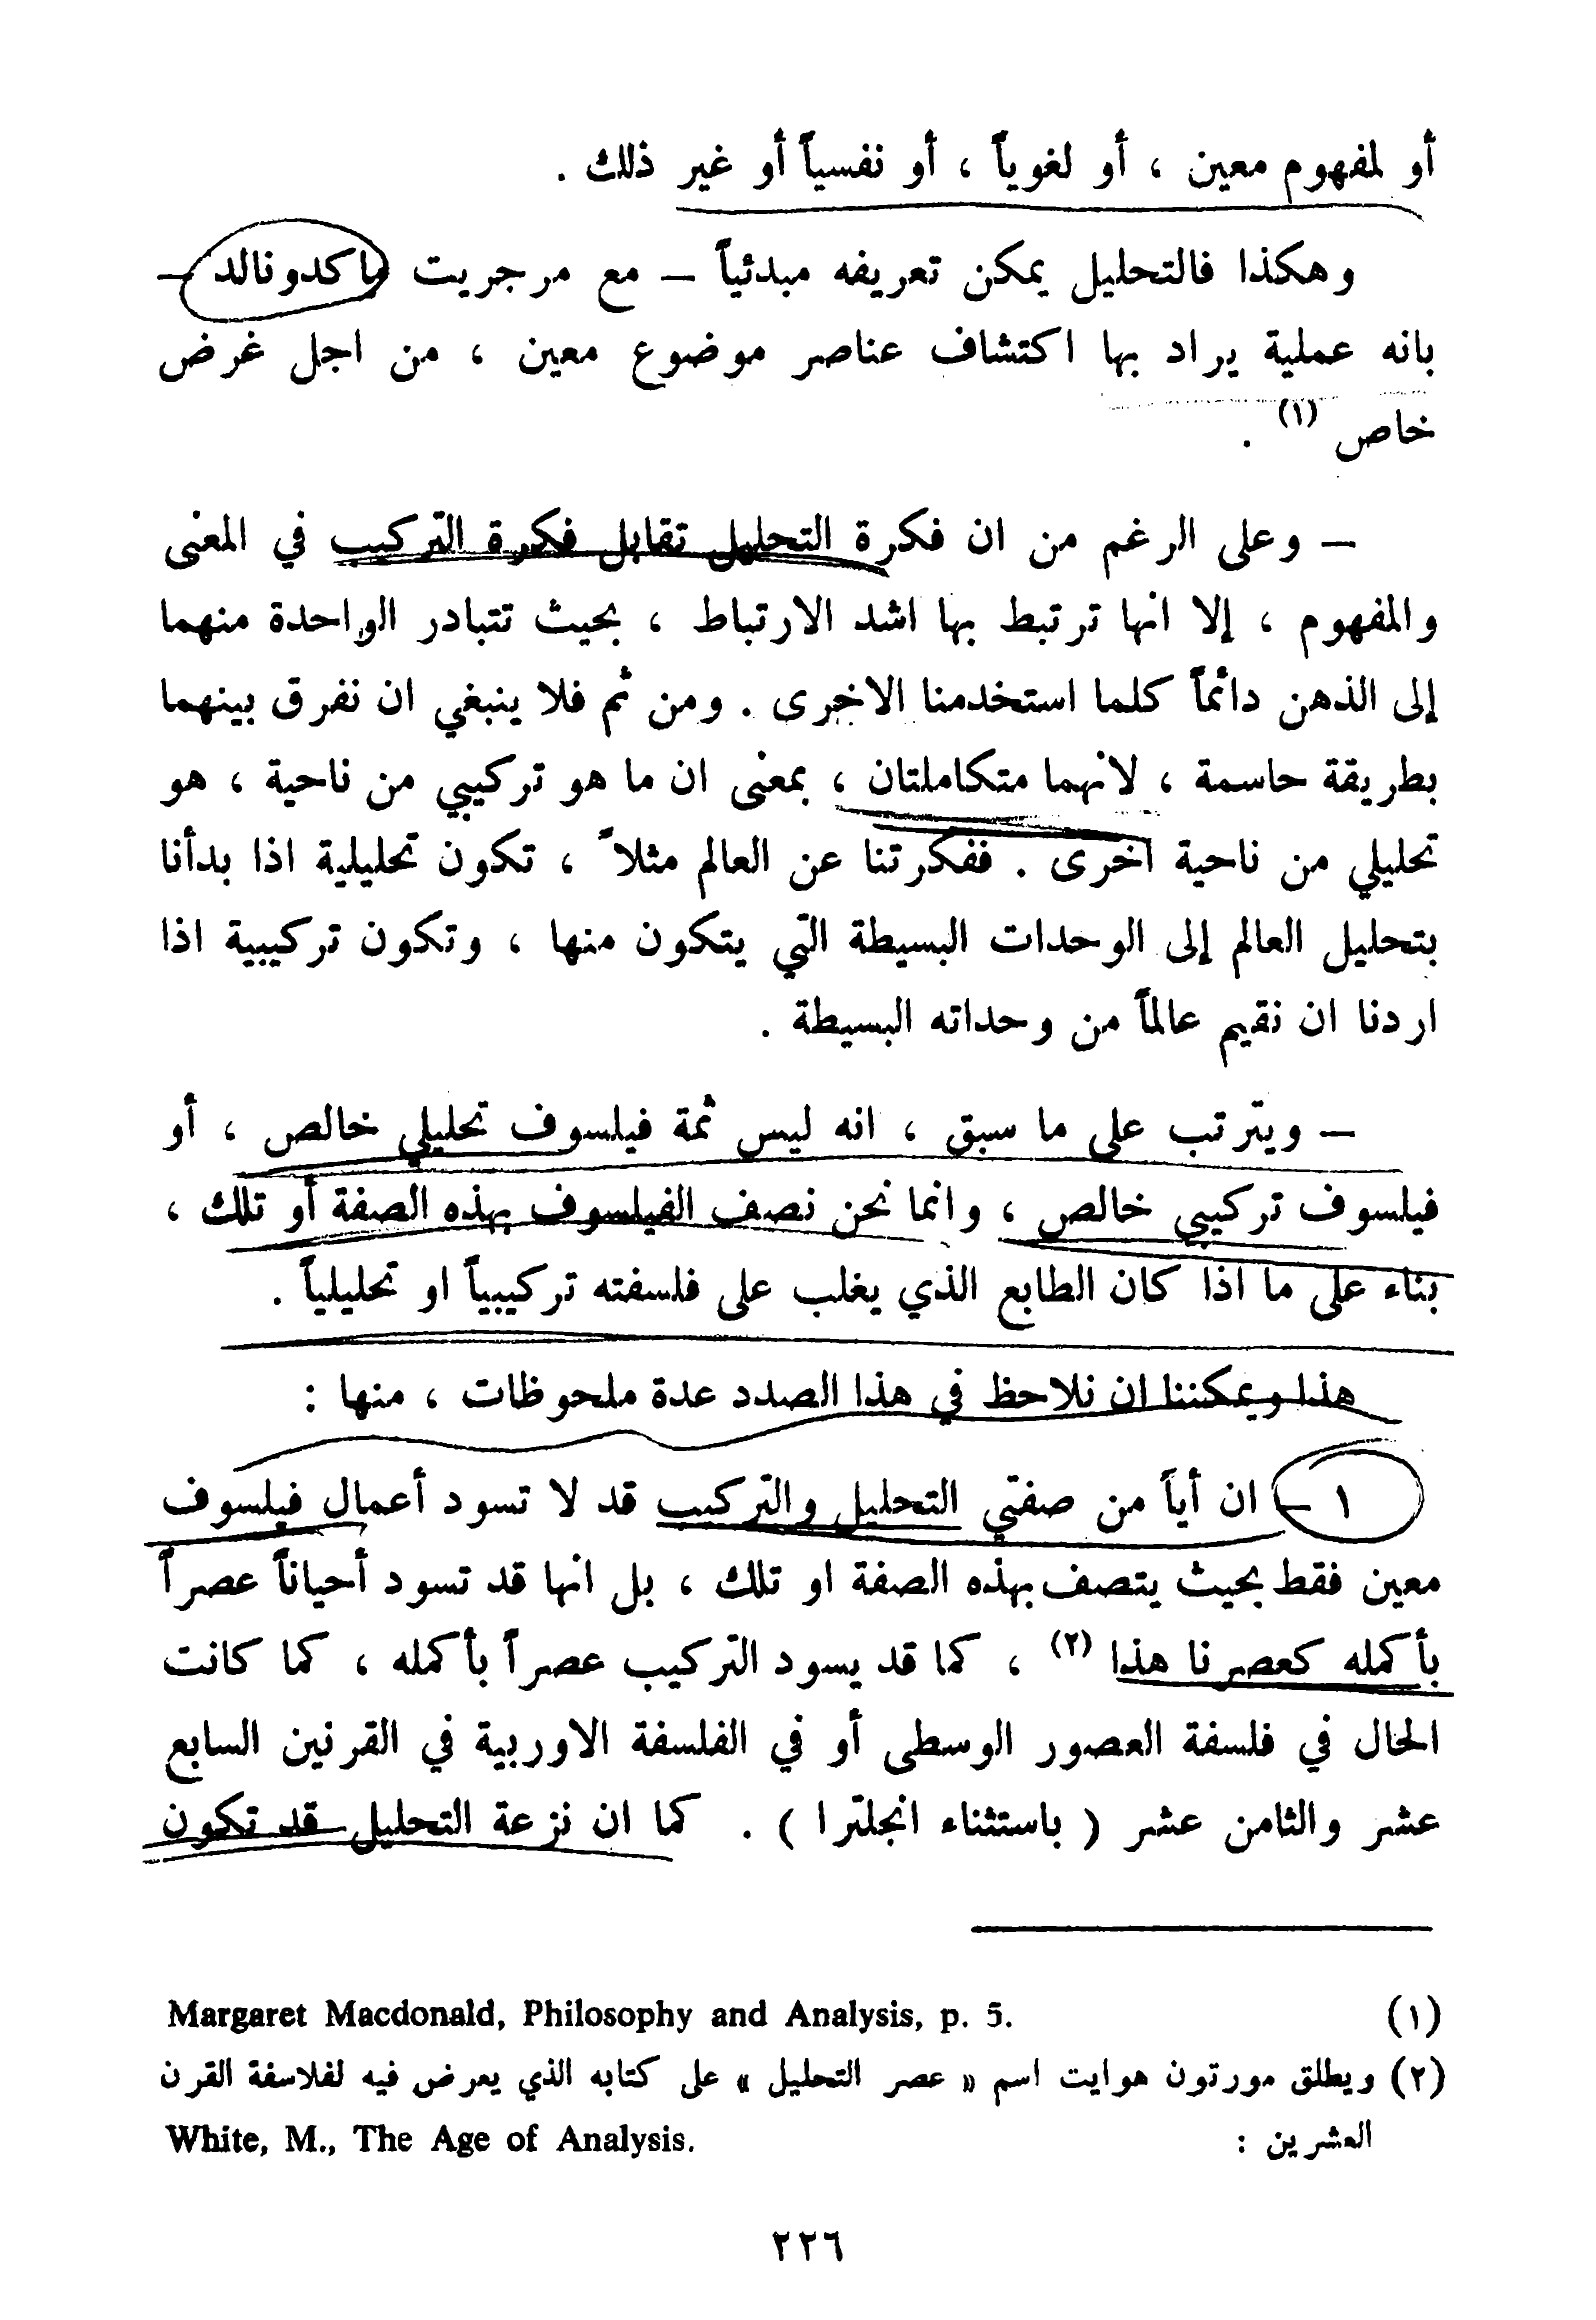 أو لمفهوم معين ، أو لغوياً ، أو نفسياً أو غير ذلك .
وهكذا فالتحليل يمكن تعريفه مبدئياً – مع مرجريت ماكدونالد –
بانه عملية يراد بها اكتشاف عناصر موضوع معين ، من اجل غرض
خاص (١) .
– وعلى الرغم من ان فكرة التحليل تقابل فكرة التركيب في المعنى
والمفهوم ، إلا انها ترتبط بها اشد الارتباط ، بحيث تتبادر الواحدة منهما
إلى الذهن دائماً كلما استخدمنا الاخرى . ومن ثم فلا ينبغي ان نفرق بينهما
بطريقة حاسمة ، لانهما متكاملتان ، بمعنى ان ما هو تركيبي من ناحية ، هو
تحليلي من ناحية اخرى . ففكرتنا عن العالم مثلاً ، تكون تحليلية اذا بدأنا
بتحليل العالم إلى الوحدات البسيطة التي يتكون منها ، وتكون تركيبية اذا
اردنا ان نقيم عالماً من وحداته البسيطة .
– ويترتب على ما سبق ، انه ليس ثمة فيلسوف تحليلي خالص ، أو
فيلسوف تركيبي خالص ، وانما نحن نصف الفيلسوف بهذه الصفة أو تلك ،
بناء على ما اذا كان الطابع الذي يغلب على فلسفته تركيبياً او تحليلياً .
هذا ويمكننا ان نلاحظ في هذا الصدد عدة ملحوظات ، منها :
١ – ان أياً من صفتي التحليل والتركيب قد لا تسود أعمال فيلسوف
معين فقط بحيث يتصف بهذه الصفة او تلك ، بل انها قد تسود أحياناً عصراً
بأكمله كعصرنا هذا (٢) ، كما قد يسود التركيب عصراً بأكمله ، كما كانت
الحال في فلسفة العصور الوسطى أو في الفلسفة الاوربية في القرنين السابع
عشر والثامن عشر ( باستثناء انجلترا ) . كما ان نزعة التحليل قد تكون
(١) Margaret Macdonald, Philosophy and Analysis, p. 5.
(٢) ويطلق مورتون هوايت اسم « عصر التحليل » على كتابه الذي يعرض فيه لفلاسفة القرن
العشرين : White, M., The Age of Analysis.
٢٢٦